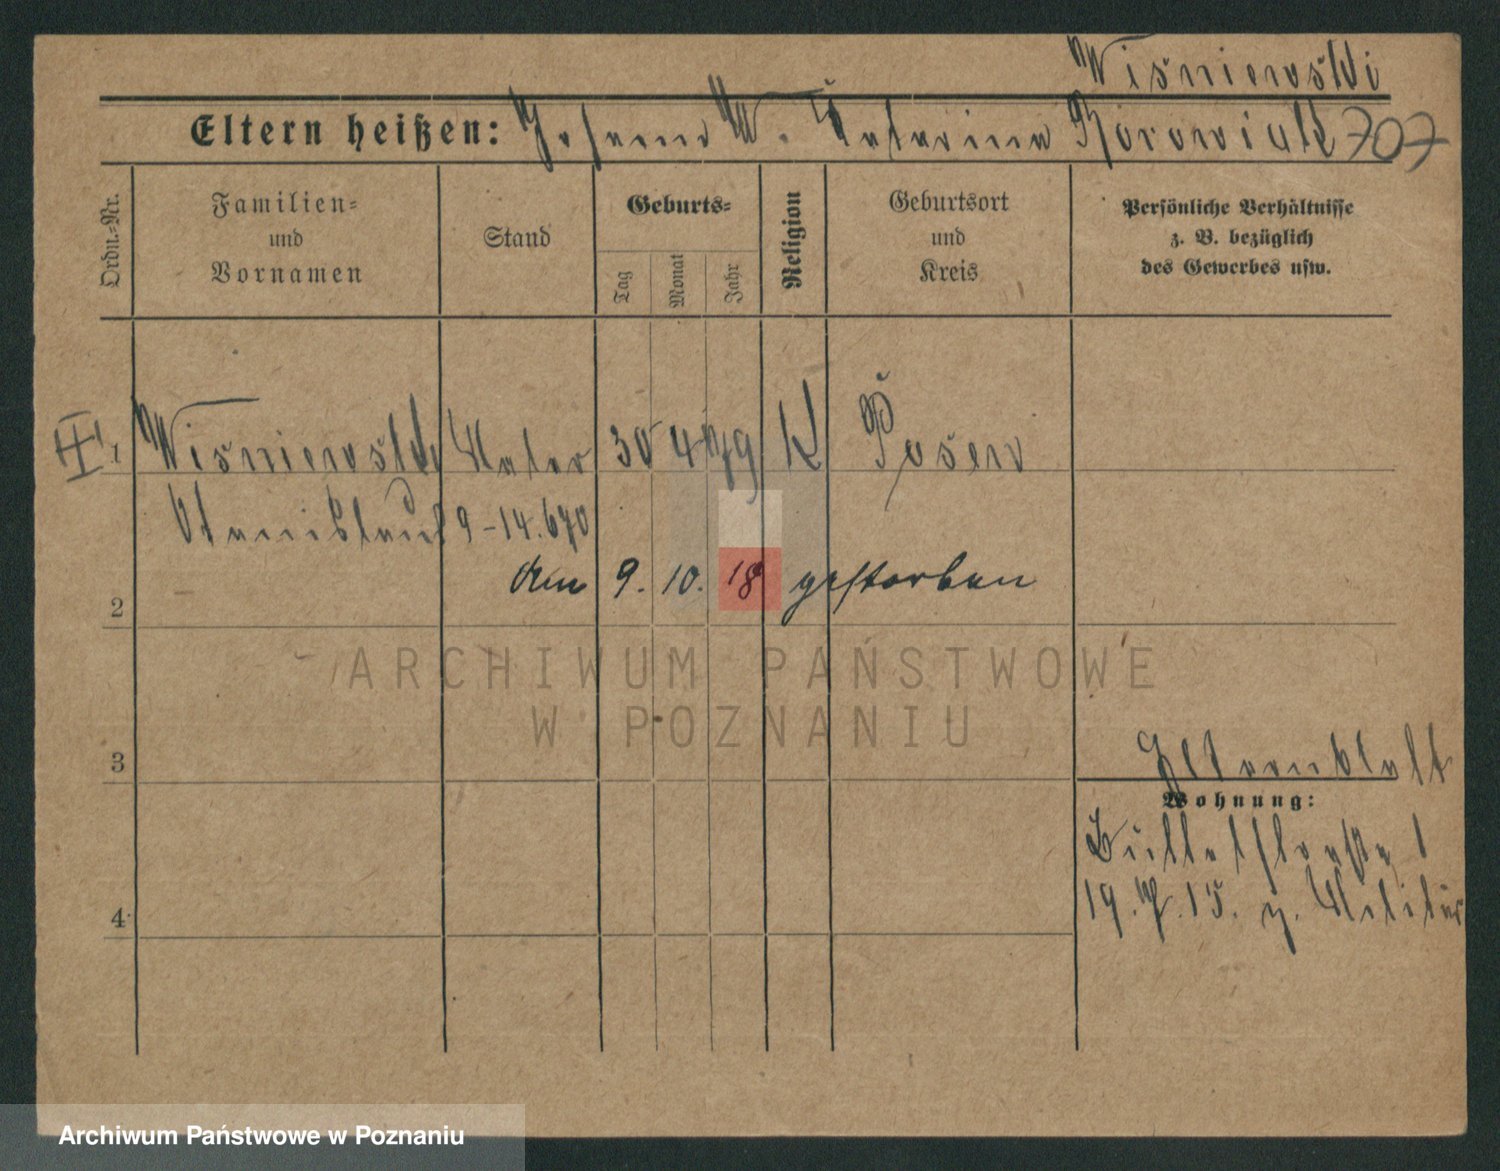 Wiśniewski
Eltern heißen: Johann W. Katarina Borowiak 707
Ordn.-Nr.
Familien- und Vornamen
Stand
Geburts-
Tag
Monat
Jahr
Religion
Geburtsort und Kreis
Persönliche Verhältnisse
z. B. bezüglich
des Gewerbes usw.
1 Wiśniewski 30 4 79 K Posen
Stanislaus 9-14.670
2 den 9. 10. 18 gestorben
ARCHIWUM PAŃSTWOWE
W POZNANIU
3
Wohnung:
19. 15. z. Militär
4
Archiwum Państwowe w Poznaniu